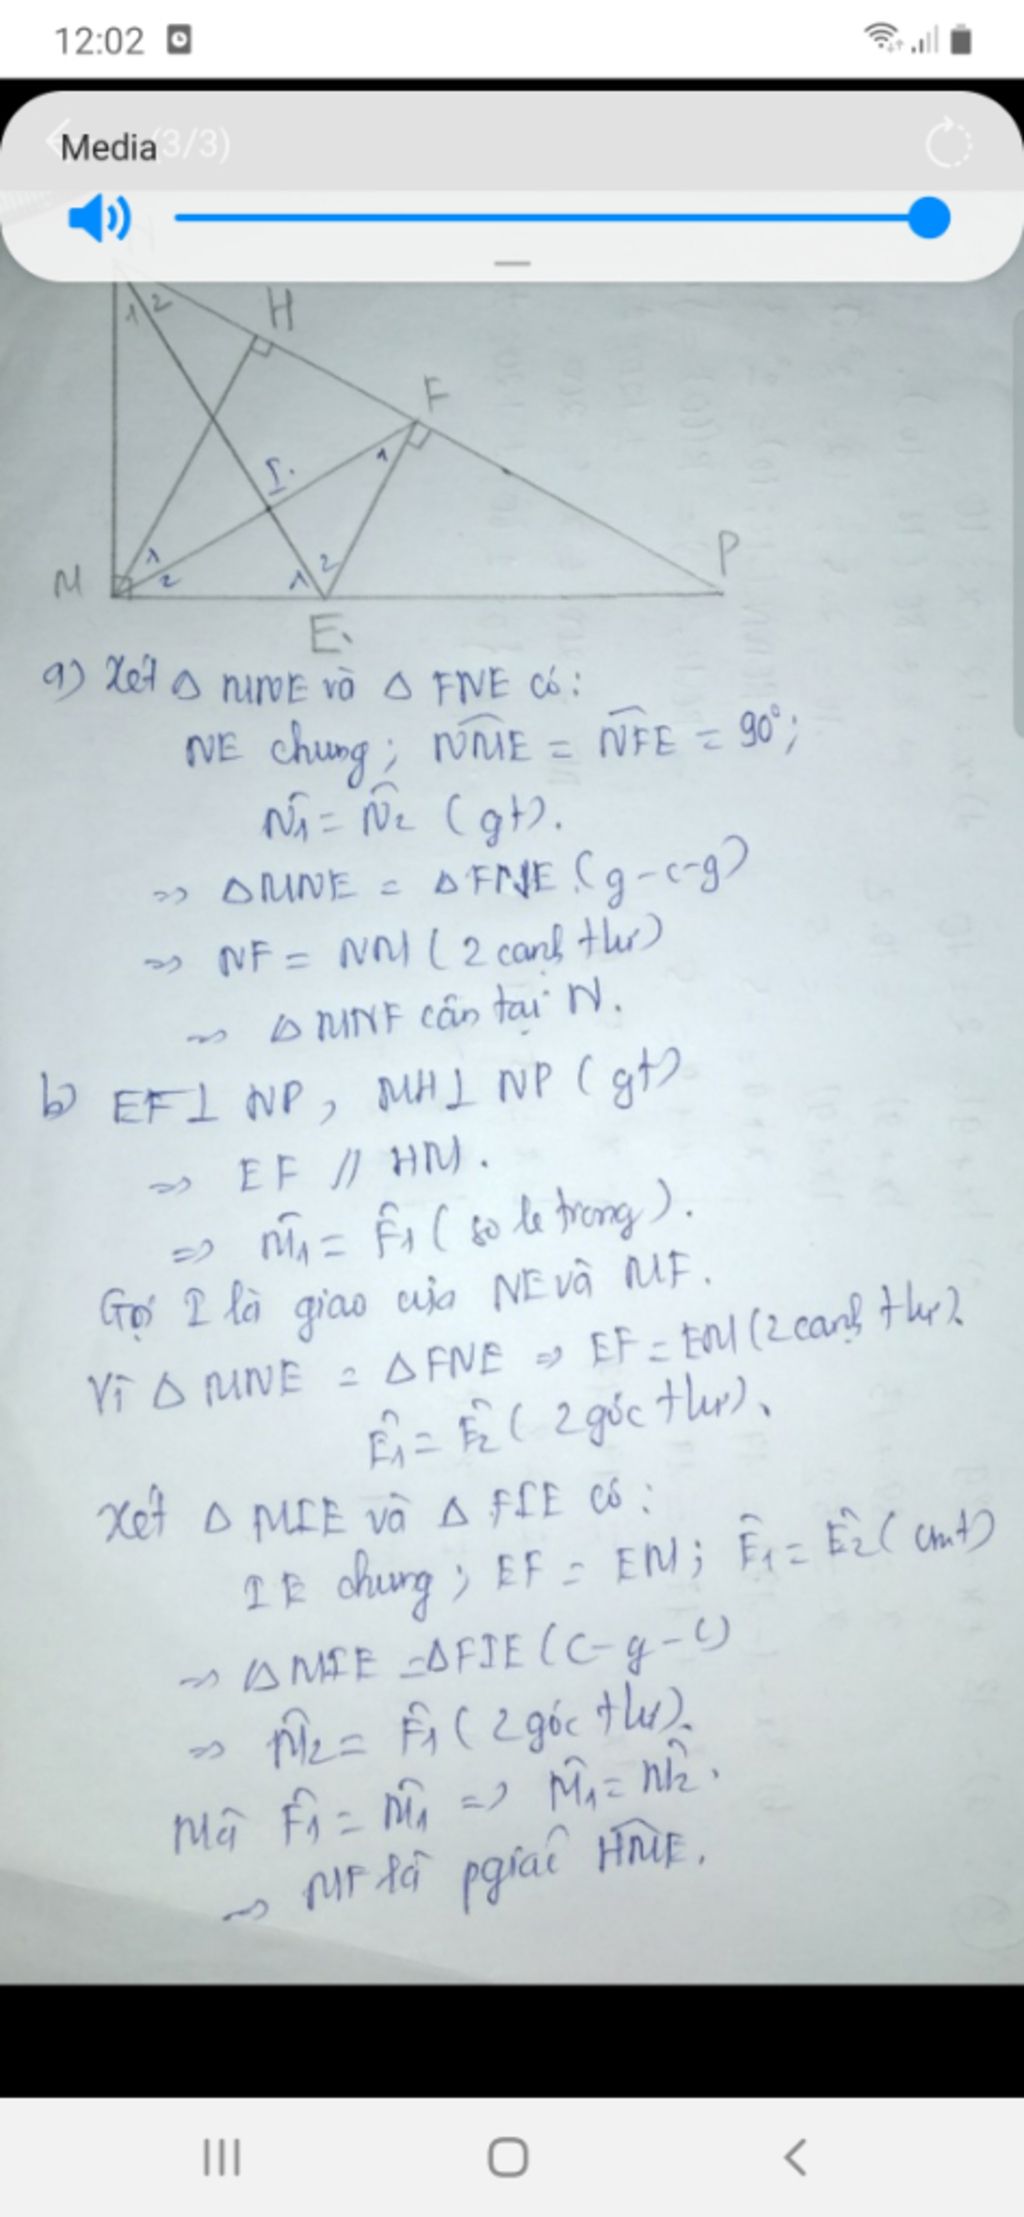 12:02
Media (3/3)
1 2 H
F
1
I
M 1 2 1 2 P
E
a) Xét Δ MNE và Δ FNE có:
NE chung; NME = NFE = 90°;
N̂1 = N̂2 (gt).
=> Δ MNE = Δ FNE (g-c-g)
=> NF = NM (2 cạnh tứ)
=> Δ MNF cân tại N.
b) EF ⊥ NP, MH ⊥ NP (gt)
=> EF // HM.
=> M̂1 = F̂1 (so le trong).
Gọi I là giao của NE và MF.
Vì Δ MNE = Δ FNE => EF = EM (2 cạnh tứ).
Ê1 = Ê2 (2 góc tứ).
Xét Δ MIE và Δ FIE có:
IE chung; EF = EM; Ê1 = Ê2 (cmt)
=> Δ MIE = Δ FIE (c-g-c)
=> M̂2 = F̂1 (2 góc tứ).
Mà F̂1 = M̂1 => M̂1 = M̂2.
=> MF là pgiác HME.